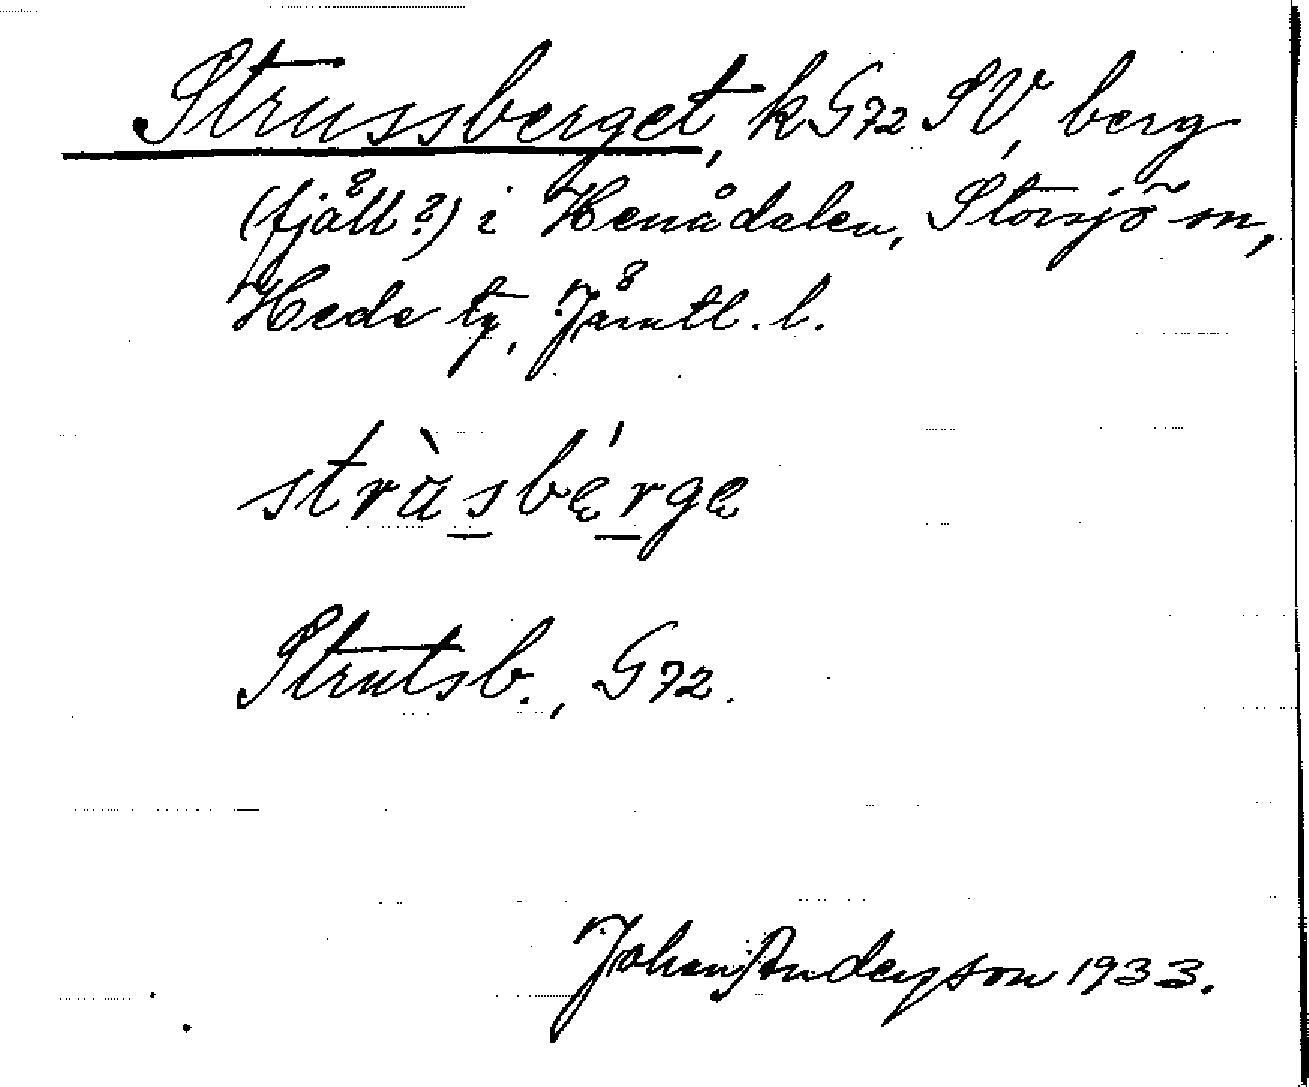 Strussberget, k G72 SV, berg
(fjäll?) i Henådalen, Storsjö sn,
Hede tg, Jämtl. l.
stràsbérge
Strutsb., G72.
Johan Anderson 1933.